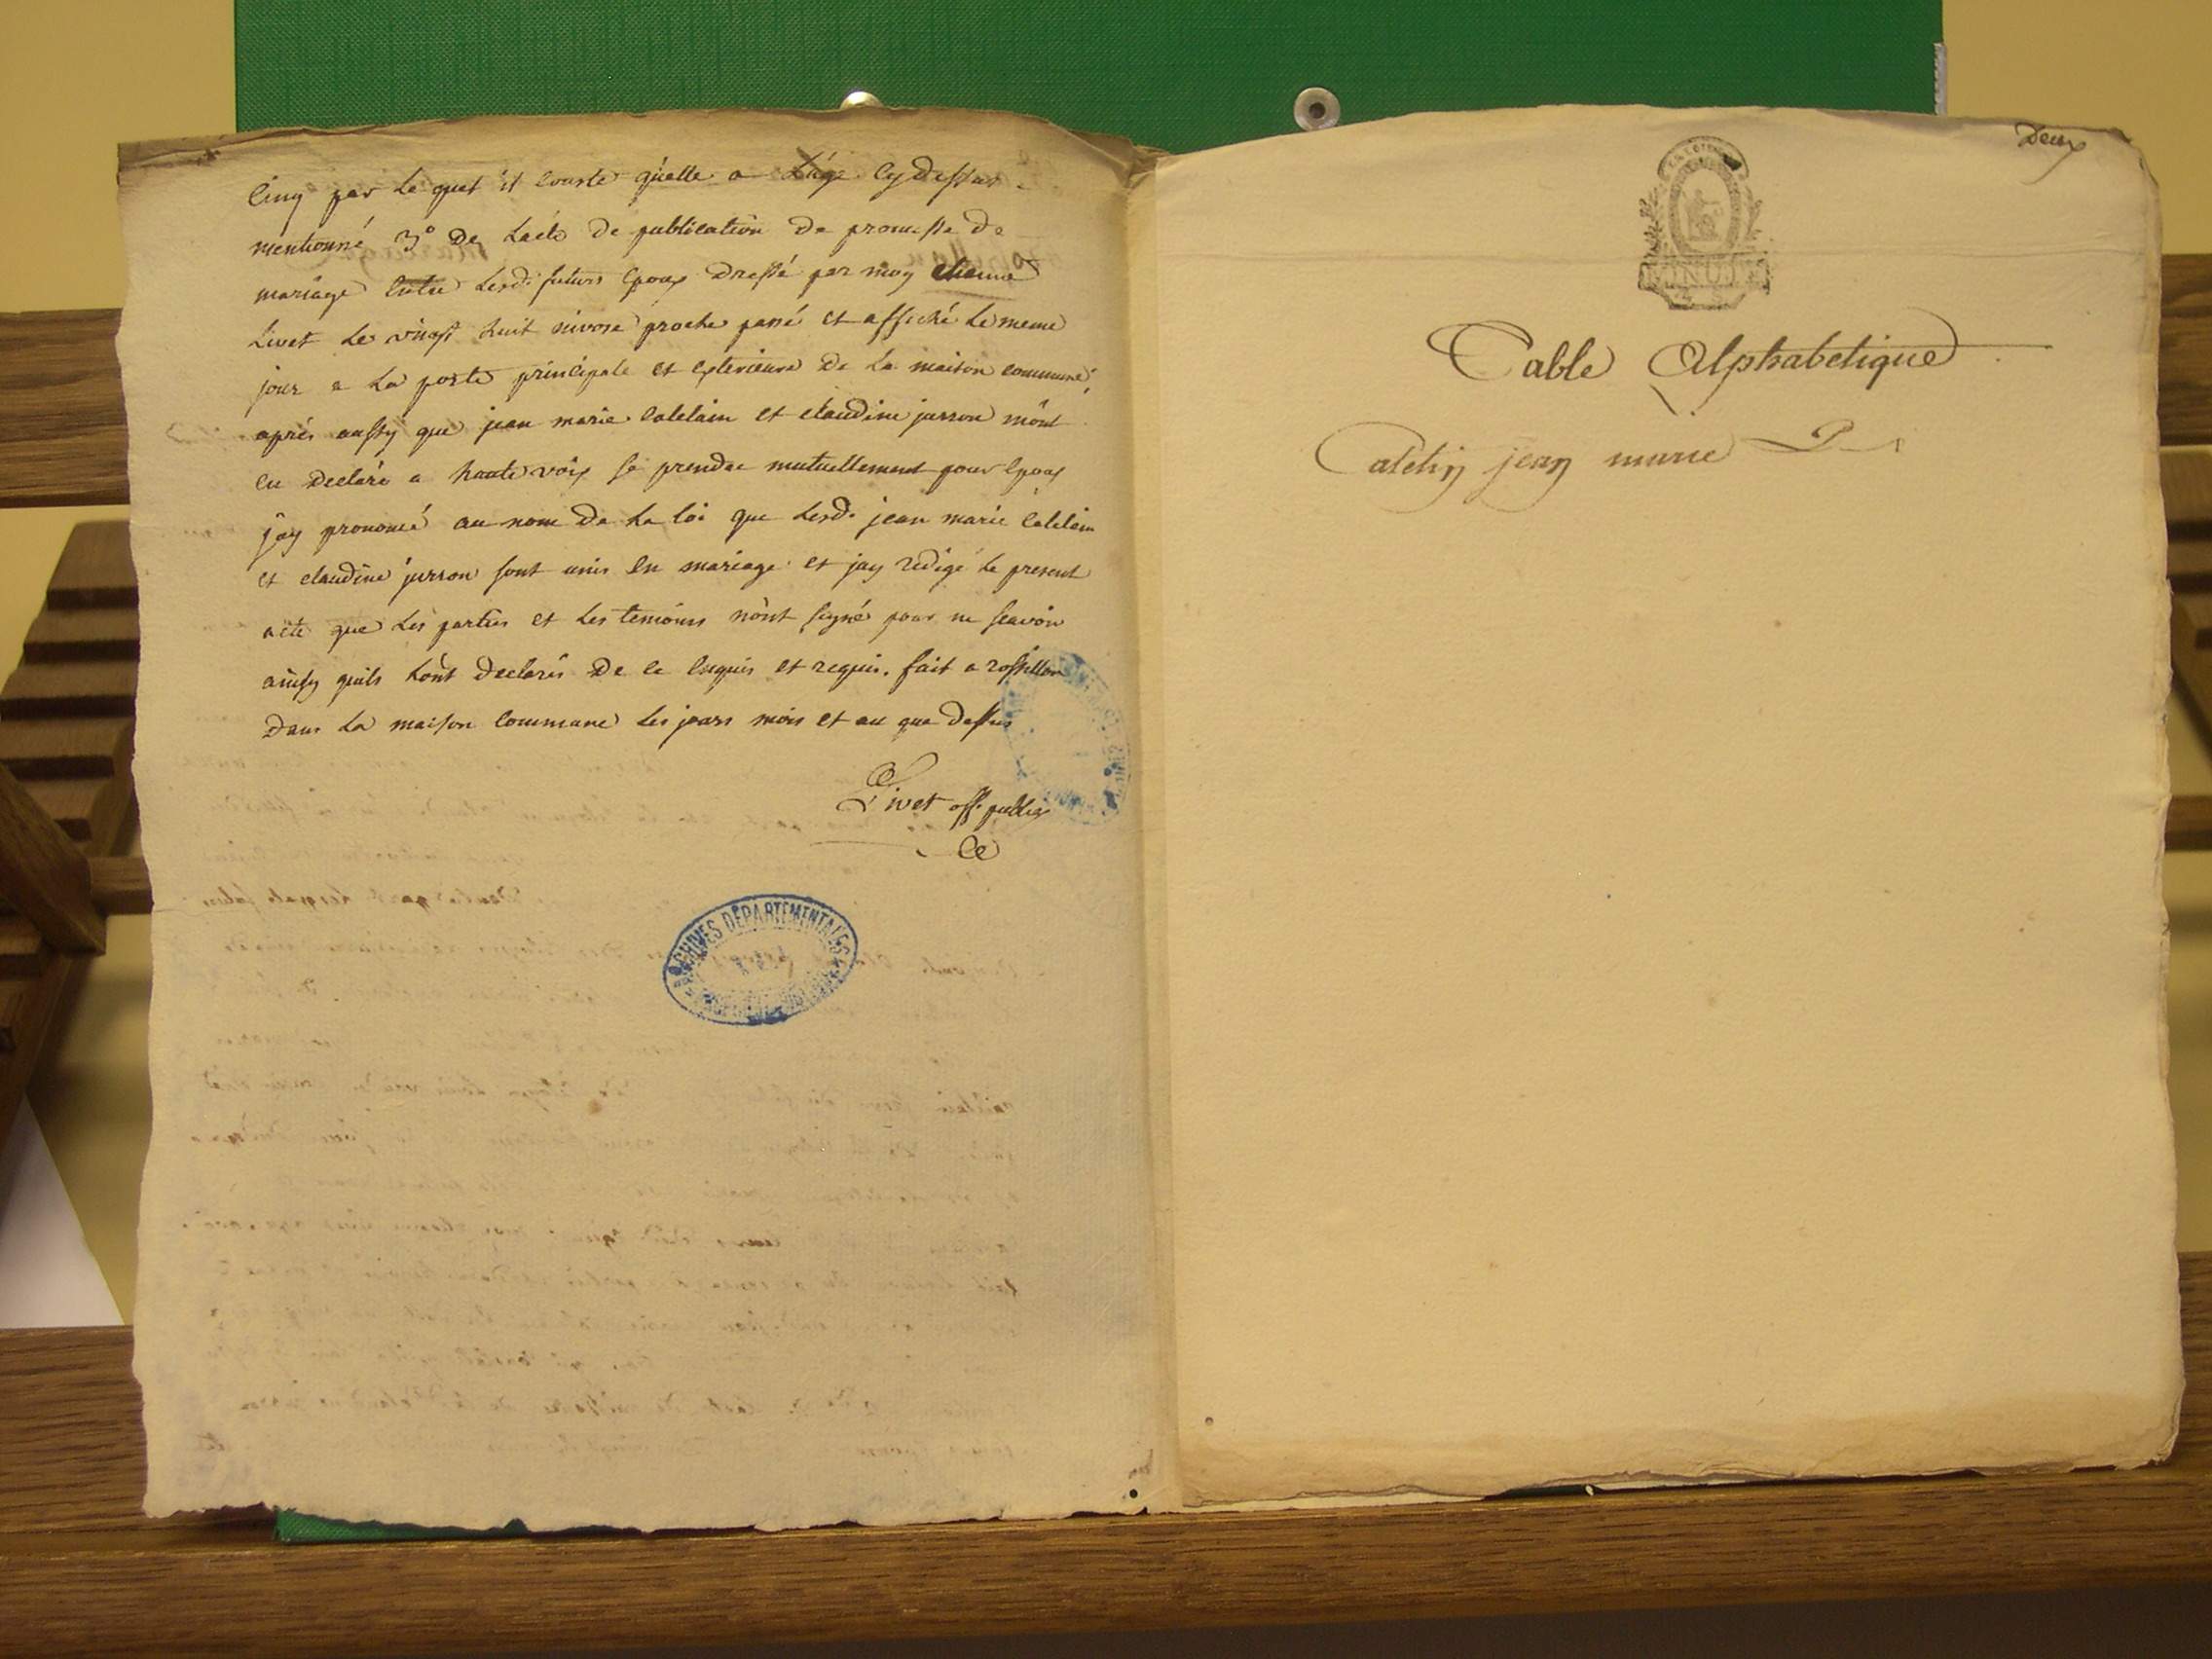 cinq par le quel il conste quelle a L'age cy dessus
mentionné 3° de L'acte de publication de promesse de
mariage entre Lesd. futurs Epoux dressé par moy etienne
Livet Le vingt huit nivose proche passé et affiché Le meme
jour a La porte principale et exterieure de La maison commune,
aprés aussy que jean marie Catelain et claudine jurron m'ont
eu declaré a haute voix se prendre mutuellement pour Epoux
j'ay prononcé au nom de La loi que Lesd. jean marie Catelain
et claudine jurron sont unis En mariage et jay redigé Le present
acte que Les parties et Les temoins n'ont signé pour ne scavoir
ainsy quils L'ont declarés de ce Enquis et requis. fait a rossillon
Dans La maison Commune Les jours mois et an que dessus
Livet off. public
ARCHIVES DÉPARTEMENTALES
Deux
MINUTE
Table Alphabetique
Catelin jean marie